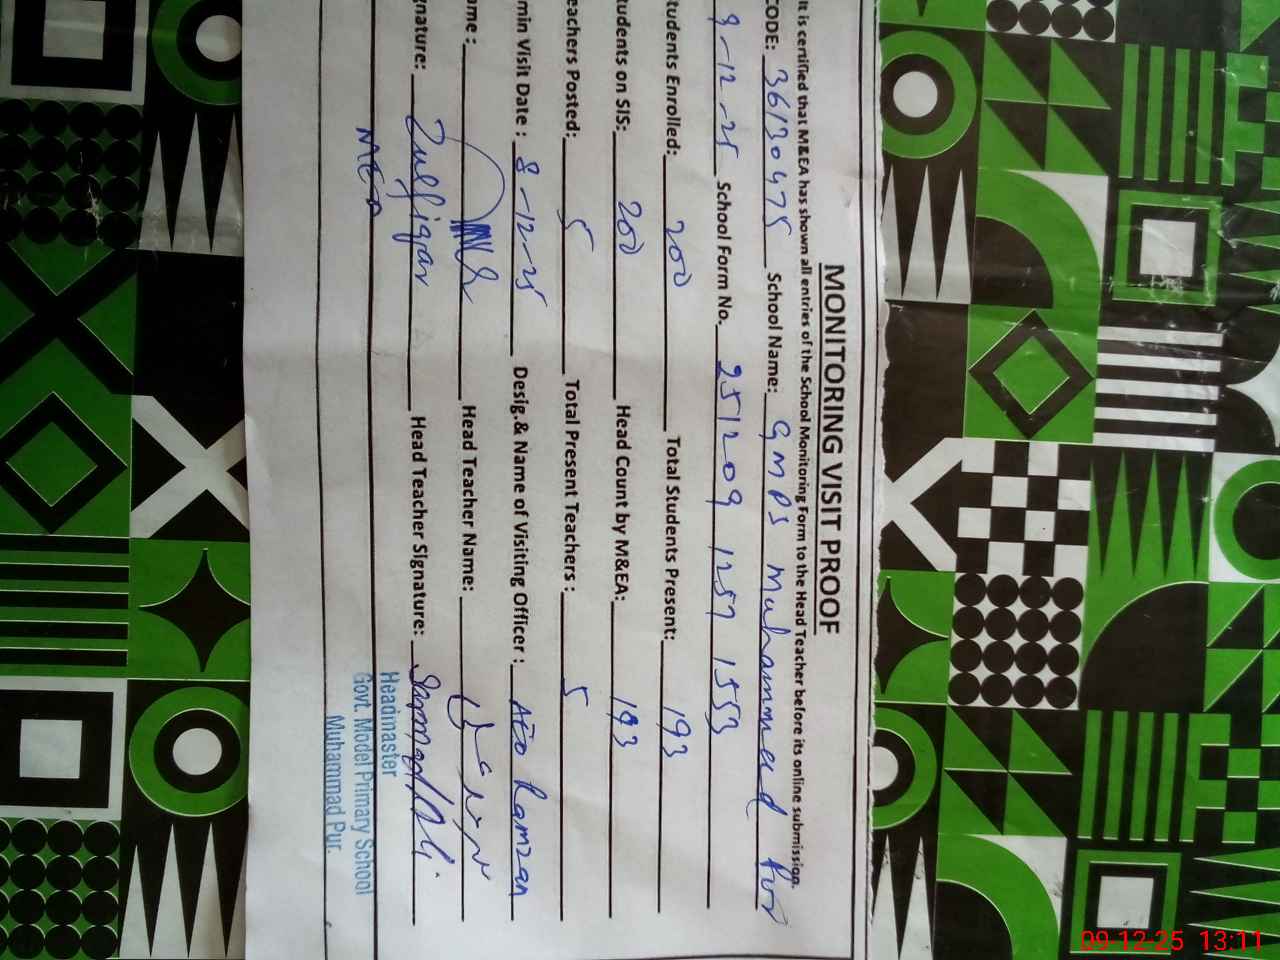 MONITORING VISIT PROOF
It is certified that M&EA has shown all entries of the School Monitoring Form to the Head Teacher before its online submission.
CODE: 36130475 School Name: GMPS Muhammad Pur
9-12-25 School Form No. 251209 1257 1553
tudents Enrolled: 200 Total Students Present: 193
tudents on SIS: 200 Head Count by M&EA: 193
eachers Posted: 5 Total Present Teachers: 5
min Visit Date: 8-12-25 Desig.& Name of Visiting Officer: AEO Ramzan
ame: Head Teacher Name:
gnature: Zulfiqar Head Teacher Signature: Sarmad Ali.
MEA
Headmaster
Govt. Model Primary School
Muhammad Pur.
09-12-25 13:11